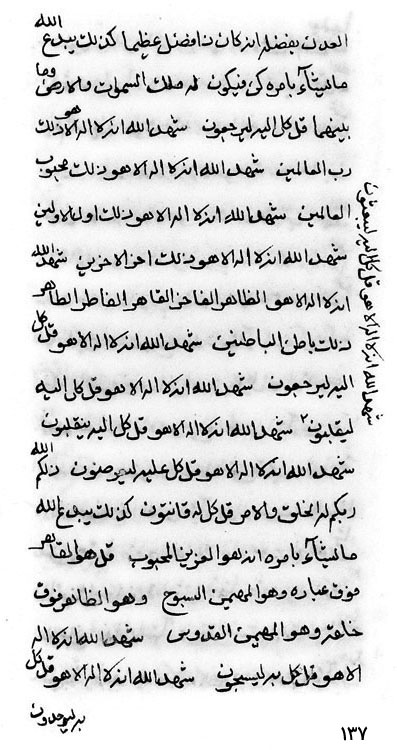 العدل بفضله انه كان ذا فضل عظيما كذلك يبدع الله
ما يشآء بامره كن فيكون له ملك السموات والارض وما
بينهما قل كل اليه ليرجعون شهد الله انه لا اله الا هو ذلك
رب العالمين شهد الله انه لا اله الا هو ذلك محبوب
العالمين شهد الله انه لا اله الا هو ذلك اول الاولين
شهد الله انه لا اله الا هو ذلك اخر الاخرين شهد الله
انه لا اله الا هو الظاهر الفاخر القاهر الفاطر الطاهر
ذلك باطن الباطنين شهد الله انه لا اله الا هو قل كل
اليه ليرجعون شهد الله انه لا اله الا هو قل كل اليه
ليقلبون ٢ شهد الله انه لا اله الا هو قل كل اليه ينقلبون
شهد الله انه لا اله الا هو قل كل عليه ليعرضون ذلكم الله
ربكم له الخلق والامر قل كل له قانتون كذلك يبدع الله
ما يشآء بامره انه لهو العزيز المحبوب قل هو القاهر
فوق عباده وهو المهيمن السبوح وهو الظاهر فوق
خلقه وهو المهيمن القدوس شهد الله انه لا اله
الا هو قل كل به ليسبحون شهد الله انه لا اله الا هو قل كل
به ليوحدون
شهد الله انه لا اله الا هو قل كل اليه ليبعثون
١٣٧